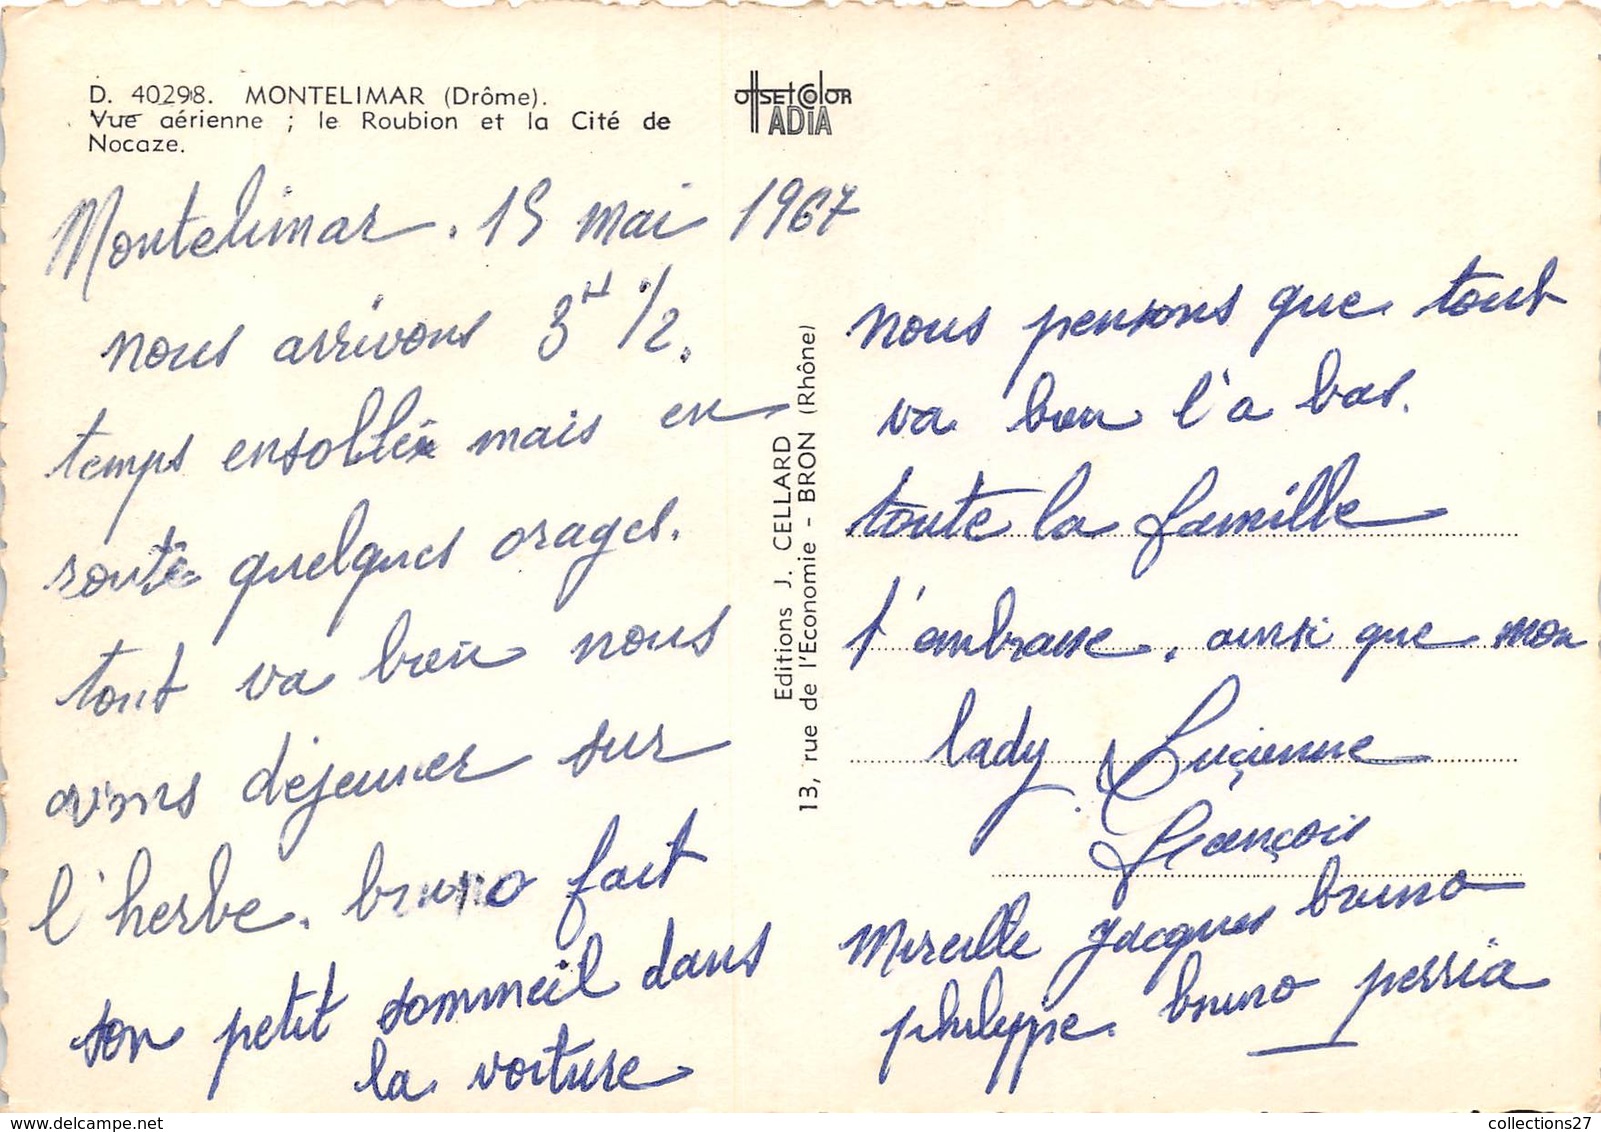 D. 40298. MONTELIMAR (Drôme).
Vue aérienne ; le Roubion et la Cité de
Nocaze.
OffSET COlOR
ADIA
Montelimar. 15 mai 1967
nous arrivons 3H 1/2.
temps ensolleé mais en
route quelques orages.
tout va bien nous
avons déjeuner sur
l'herbe. bruno fait
son petit sommeil dans
la voiture
Editions J. CELLARD
13, rue de l'Economie - BRON (Rhône)
nous pensons que tout
va bien l'a bas.
toute la famille
t'embrasse. ainsi que mon
lady. Luçienne
François
Mireille jacques bruno
philippe. bruno perria
collections27